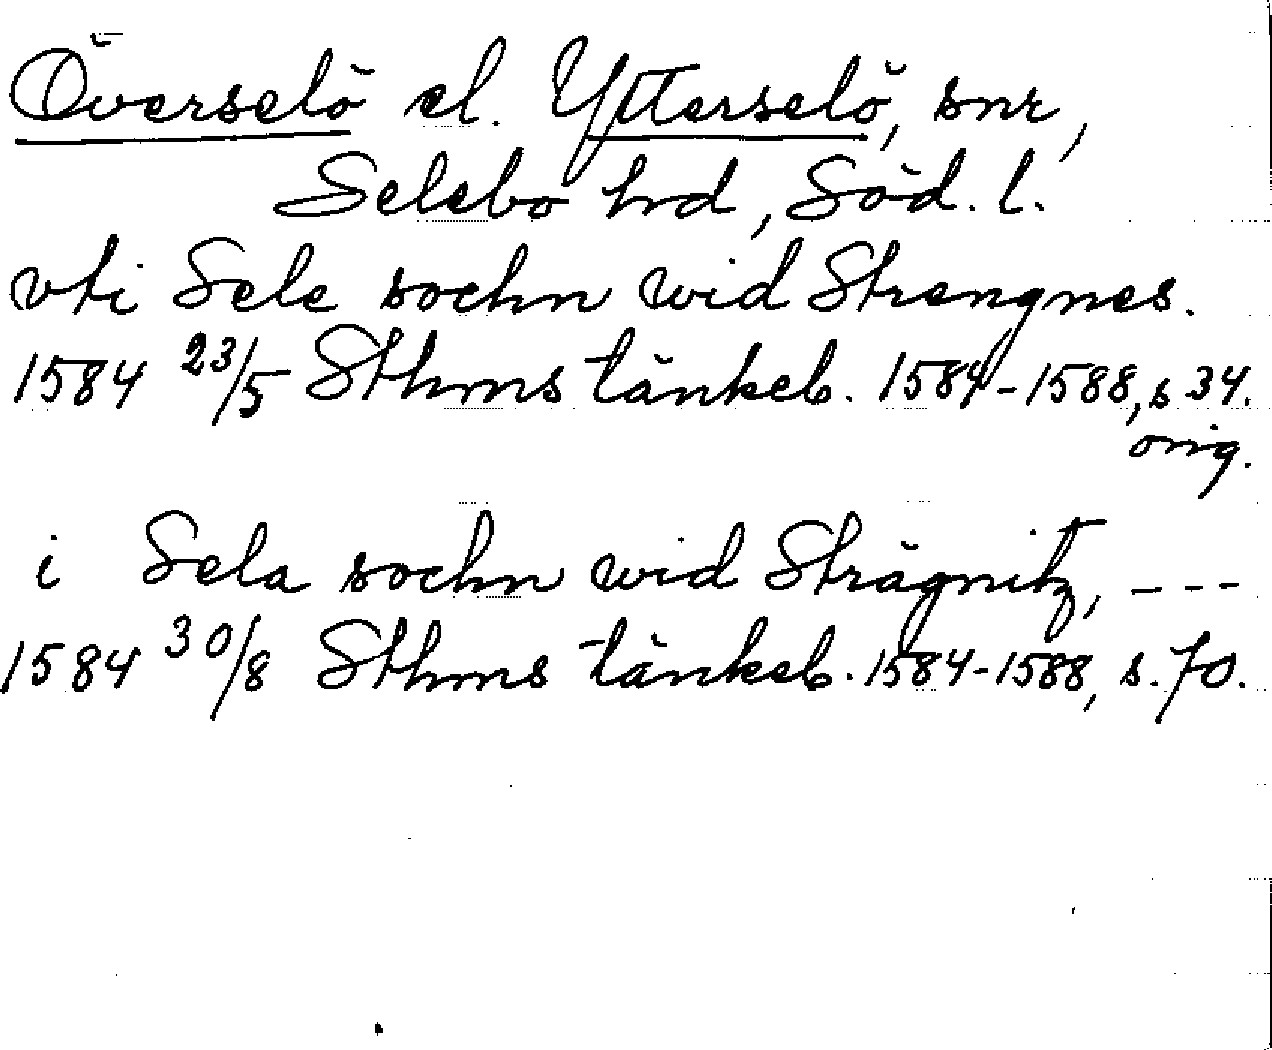 Överselö el. Ytterselö, snr,
Selebo hrd, Söd. l.
vti Sele sochn wid Strengnes.
1584 23/5 Sthms tänkeb. 1584-1588, s 34.
orig.
i Sela sochn wid Strägnitz, ---
1584 30/8 Sthms tänkeb. 1584-1588, s. 70.